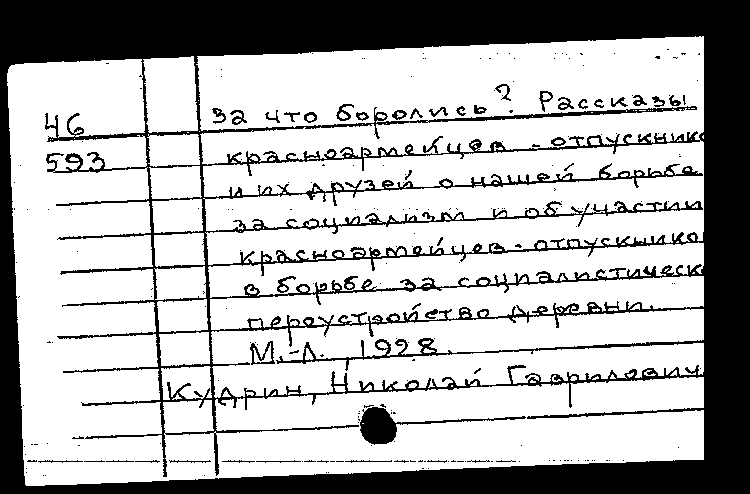 46 За что боролись? Рассказы
593 красноармейцев-отпускнико
и их друзей о нашей борьбе
за социализм и об участии
красноармейцев-отпускнико
в борьбе за социалистическ
переустройство деревни.
М.-Л., 1928.
Кудрин, Николай Гаврилович